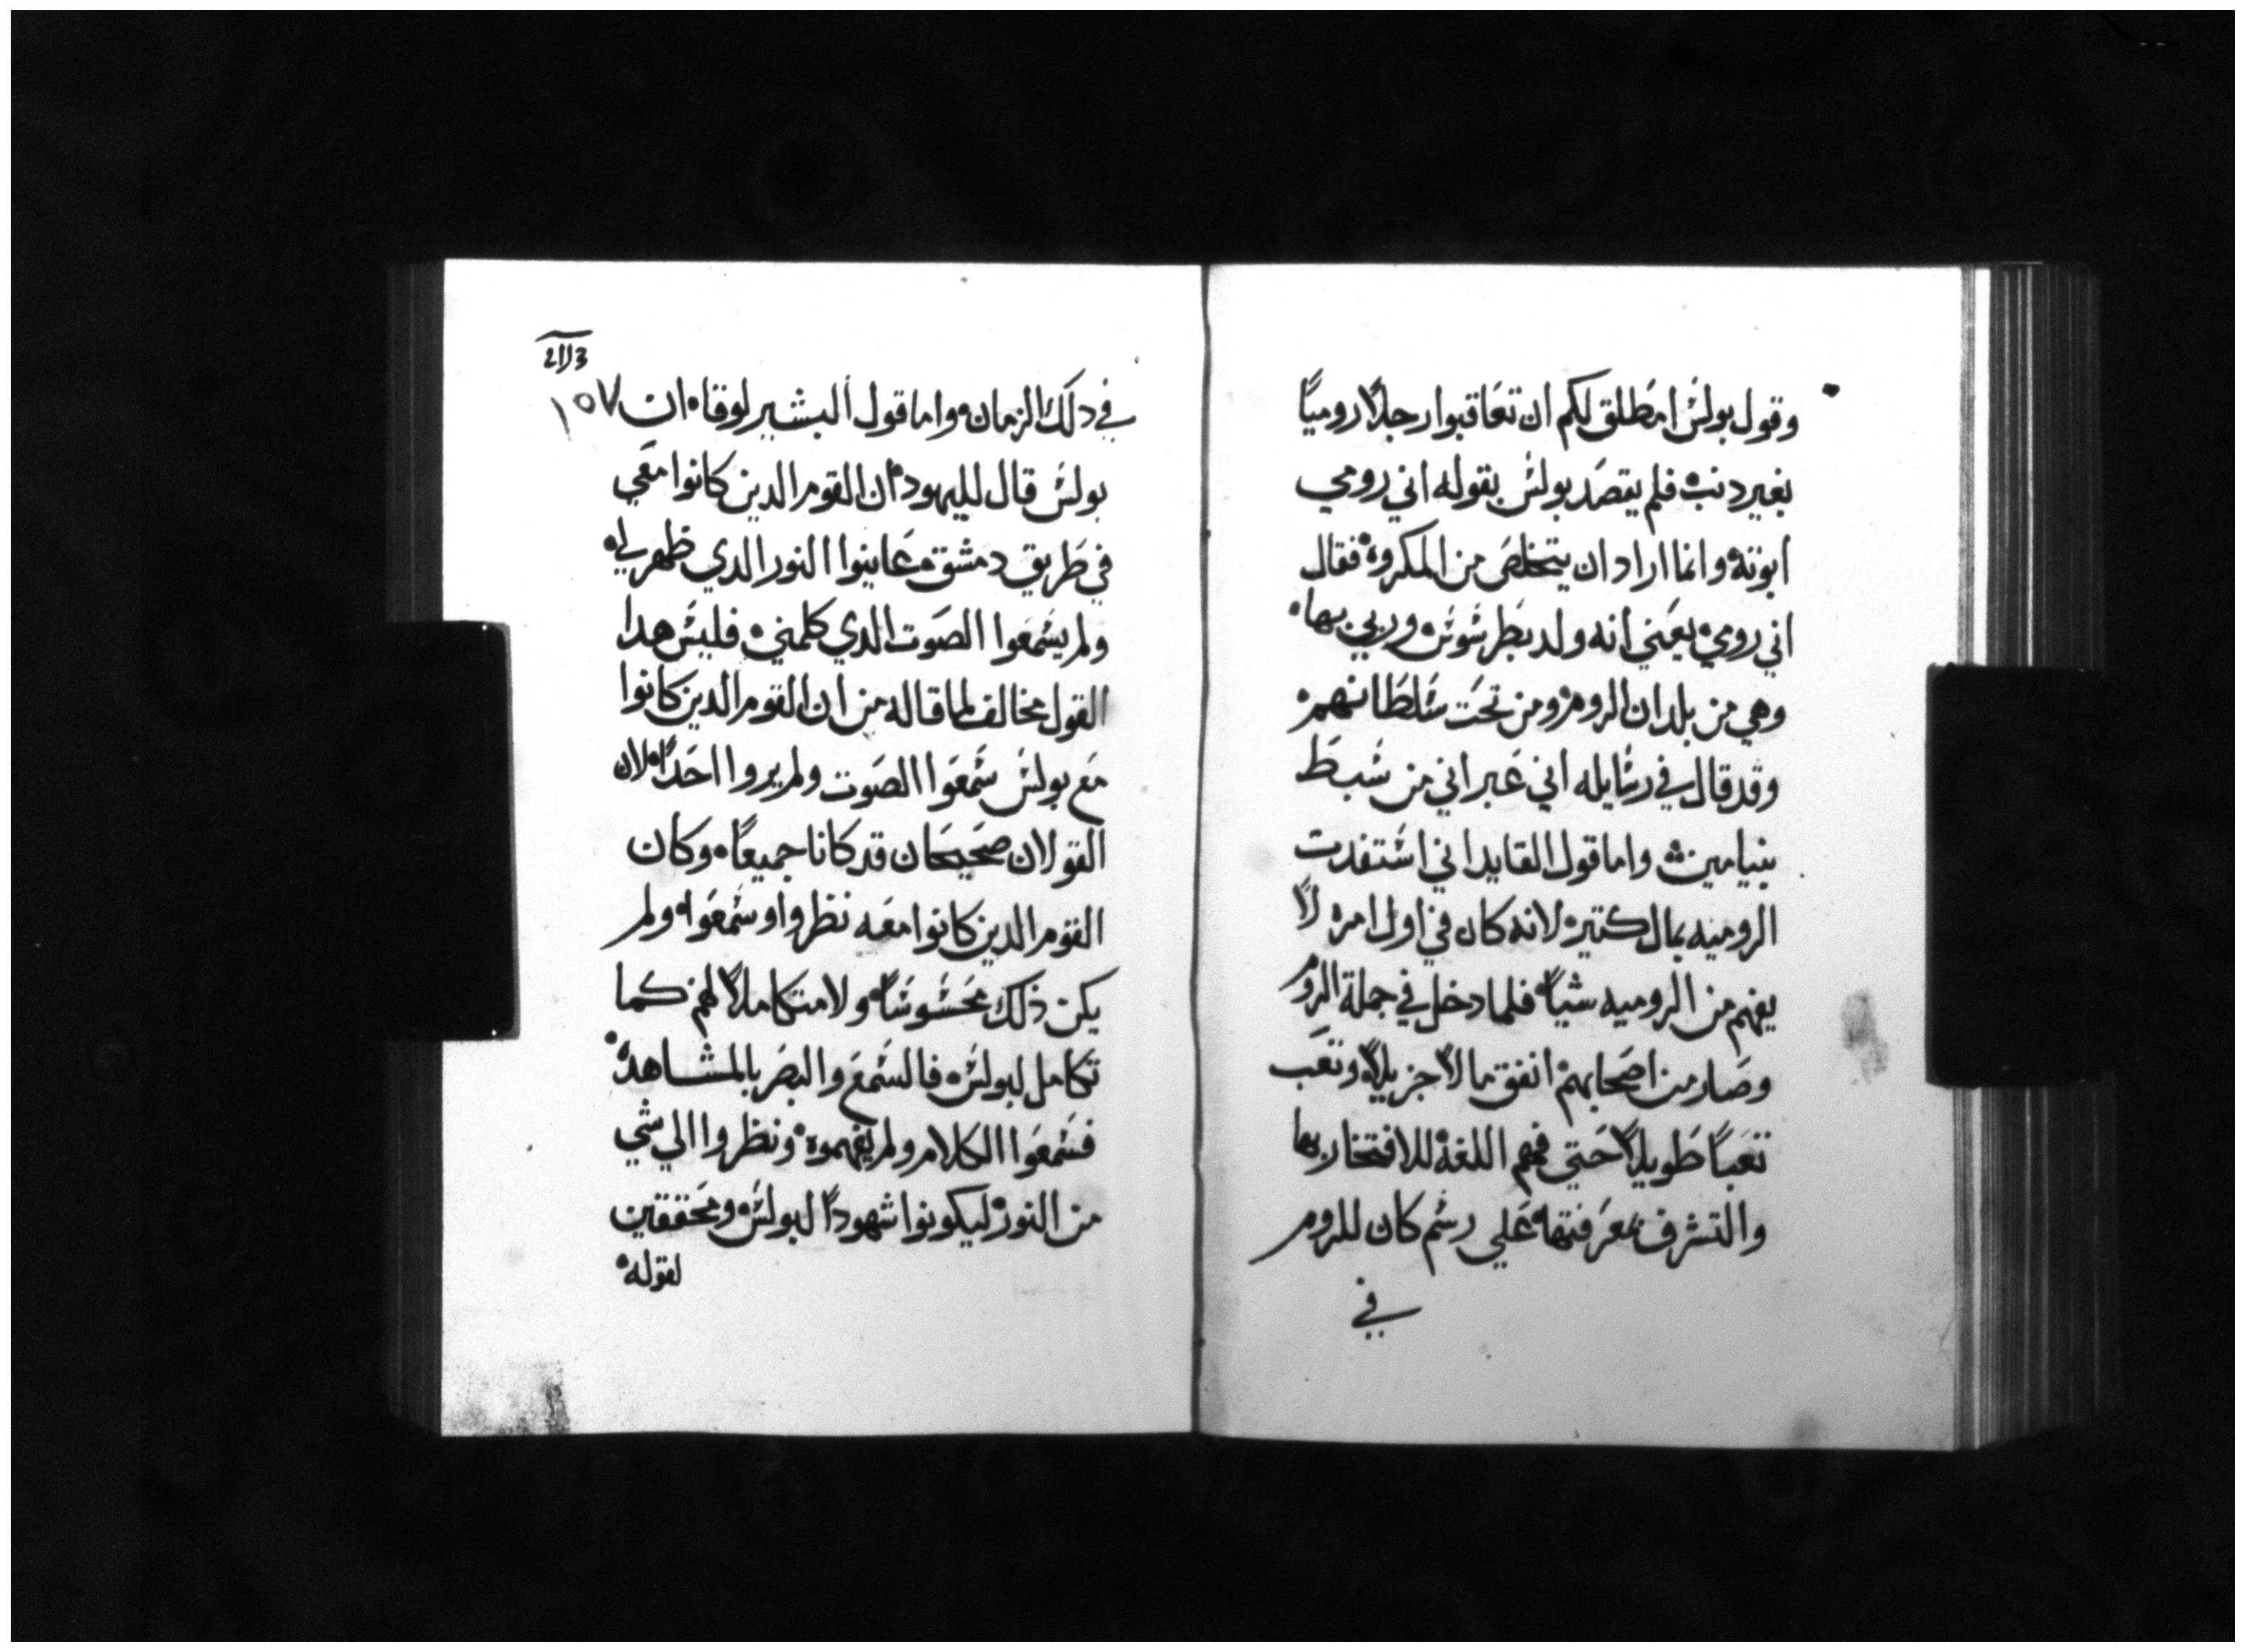 وقول بولس امطلق لكم ان تعاقبوا رجلاً روميًا
بغير دنب فلم يقصد بولس بقوله اني رومي
ابوته وانما اراد ان يتخلص من المكروه فقال
اني رومي يعني انه ولد بطرسوس وربي بها
وهي من بلدان الروم ومن تحت سلطانهم
وقد قال في رسايله اني عبراني من سبط
بنيامين واما قول القايد اني استفدت
الروميه بمال كتير لانه كان في اول امره لا
يفهم من الروميه شياً فلما دخل في جملة الروم
وصار من اصحابهم انفق مالاً جزيلاً وتعب
تعبًا طويلاً حتي فهم اللغه للافتخار بها
والتشرف بمعرفتها علي رسم كان للروم
في
١٥٧
في دلك الزمان واما قول البشير لوقا ان
بولس قال لليهود ان القوم الدين كانوا معي
في طريق دمشق عاينوا النور الدي ظهر لي
ولم يسمعوا الصوت الدي كلمني فليس هدا
القول مخالف لما قاله من ان القوم الدين كانوا
مع بولس سمعوا الصوت ولم يروا احدًا لان
القولان صحيحان قد كانا جميعًا وكان
القوم الدين كانوا معه نظروا وسمعوا ولم
يكن ذلك محسوسًا ولا متكاملاً لهم كما
تكامل لبولس فالسمع والبصر بالمشاهده
فسمعوا الكلام ولم يفهموه ونظروا الي شي
من النور ليكونوا شهودًا لبولس ومحققين
لقوله